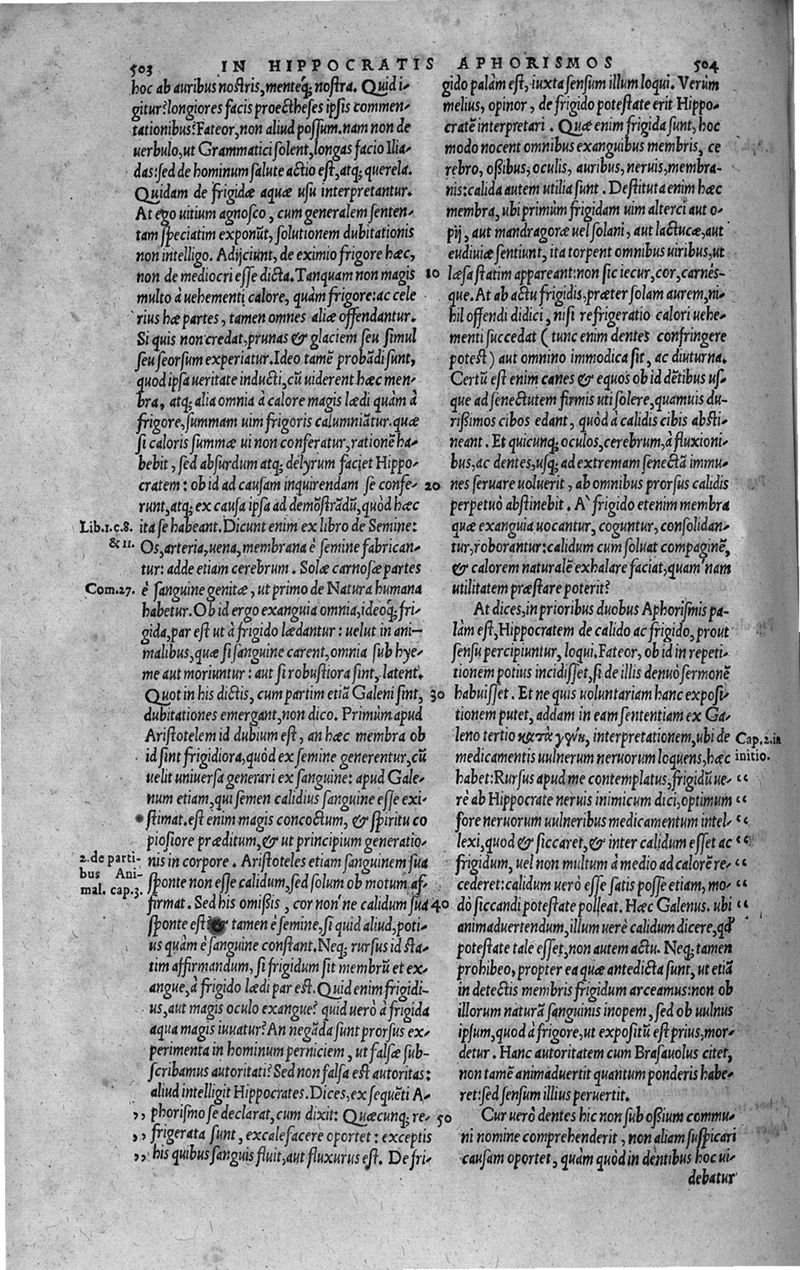 503 IN HIPPOCRATIS APHORISMOS 504
hoc ab auribus nostris, menteq́; nostra. Quid i-
gitur? longiores facis proectheses ipsis commen-
tationibus? Fateor, non aliud possum. nam non de
uerbulo, ut Grammatici solent, longas facio Ilia-
das: sed de hominum salute actio est, atq; querela.
Quidam de frigidæ aquæ usu interpretantur.
At ego uitium agnosco, cum generalem senten-
tam speciatim exponũt, solutionem dubitationis
non intelligo. Adijciunt, de eximio frigore hæc,
non de mediocri esse dicta. Tanquam non magis
multo à uehementi calore, quàm frigore: ac cele
rius hæ partes, tamen omnes aliæ offendantur.
Si quis non credat, prunas & glaciem seu simul
seu seorsum experiatur. Ideo tamẽ probãdi sunt,
quod ipsa ueritate inducti, cũ uiderent hæc mem-
bra, atq; alia omnia à calore magis lædi quàm à
frigore, summam uim frigoris calumniãtur. quæ
si caloris summæ ui non conferatur, rationẽ ha-
bebit, sed absurdum atq; delyrum faciet Hippo-
cratem: ob id ad causam inquirendam se confe-
runt, atq; ex causa ipsa ad demõstrãdũ, quòd hæc
Lib.1.c.8. & 11.
ita se habeant. Dicunt enim ex libro de Semine:
Os, arteria, uena, membrana è semine fabrican-
tur: adde etiam cerebrum. Solæ carnosæ partes
Com.27.
è sanguine genitæ, ut primo de Natura humana
habetur. Ob id ergo exanguia omnia, ideoq́; fri-
gida, par est ut à frigido lædantur: uelut in ani-
malibus, quæ si sanguine carent, omnia sub hye-
me aut moriuntur: aut si robustiora sint, latent.
Quot in his dictis, cum partim etiã Galeni sint,
dubitationes emergant, non dico. Primùm apud
Aristotelem id dubium est, an hæc membra ob
id sint frigidiora, quòd ex semine generentur, cũ
uelit uniuersa generari ex sanguine: apud Gale-
num etiam, qui semen calidius sanguine esse exi-
stimat. est enim magis concoctum, & spiritu co
piosiore præditum, & ut principium generatio-
2. de parti-
bus Ani-
mal. cap.3.
nis in corpore. Aristoteles etiam sanguinem sua
sponte non esse calidum, sed solum ob motum af-
firmat. Sed his omissis, cor non'ne calidum sua
sponte est? & tamen è semine, si quid aliud, poti-
us quàm è sanguine constant. Neq; rursus id sta-
tim affirmandum, si frigidum sit membrũ et ex-
angue, à frigido lædi par est. Quid enim frigidi-
us, aut magis oculo exangue? quid uerò à frigida
aqua magis iuuatur? An negãda sunt prorsus ex-
perimenta in hominum perniciem, ut falsæ sub-
scribamus autoritati? Sed non falsa est autoritas:
aliud intelligit Hippocrates. Dices, ex sequẽti A-
,, phorismo se declarat, cum dixit: Quæcunq; re-
,, frigerata sunt, excalefacere oportet: exceptis
,, his quibus sanguis fluit, aut fluxurus est. De fri-
gido palàm est, iuxta sensum illum loqui. Verùm
melius, opinor, de frigido potestate erit Hippo-
cratẽ interpretari. Quæ enim frigida sunt, hoc
modo nocent omnibus exanguibus membris, ce
rebro, oßibus, oculis, auribus, neruis, membra-
nis: calida autem utilia sunt. Destituta enim hæc
membra, ubi primùm frigidam uim alterci aut o-
pij, aut mandragoræ uel solani, aut lactucæ, aut
eudiuiæ sentiunt, ita torpent omnibus uiribus, ut
10 læsa statim appareant: non sic iecur, cor, carnés-
que. At ab actu frigidis, præter solam aurem, ni-
hil offendi didici, nisi refrigeratio calori uehe-
menti succedat (tunc enim dentes confringere
potest) aut omnino immodica sit, ac diuturna.
Certũ est enim canes & equos ob id dẽtibus us-
que ad senectutem firmis uti solere, quamuis du-
rißimos cibos edant, quòd à calidis cibis absti-
neant. Et quicunq; oculos, cerebrum, à fluxioni-
bus, ac dentes, usq; ad extremam senectã immu-
20 nes seruare uoluerit, ab omnibus prorsus calidis
perpetuò abstinebit. A frigido etenim membra
quæ exanguia uocantur, coguntur, consolidan-
tur, roborantur: calidum cum soluat compaginẽ,
& calorem naturalẽ exhalare faciat, quam nam
utilitatem præstare poterit?
At dices, in prioribus duobus Aphorismis pa-
làm est, Hippocratem de calido ac frigido, prout
sensu percipiuntur, loqui. Fateor, ob id in repeti-
tionem potius incidisset, si de illis denuò sermonẽ
30 habuisset. Et ne quis uoluntariam hanc exposi-
tionem putet, addam in eam sententiam ex Ga-
leno tertio κατὰ γένη, interpretationem, ubi de
Cap.2.in
initio.
medicamentis uulnerum neruorum loquens, hæc
habet: Rursus apud me contemplatus, frigidũ ue- “
rè ab Hippocrate neruis inimicum dici, optimum “
fore neruorum uulneribus medicamentum intel- “
lexi, quod & siccaret, & inter calidum esset ac “
frigidum, uel non multum à medio ad calorẽ re- “
cederet: calidum uerò esse satis posse etiam, mo- “
40 dò siccandi potestate polleat. Hæc Galenus. ubi
animaduertendum, illum uerè calidum dicere, qđ
potestate tale esset, non autem actu. Neq; tamen
prohibeo, propter ea quæ antedicta sunt, ut etiã
in detectis membris frigidum arceamus: non ob
illorum naturã sanguinis inopem, sed ob uulnus
ipsum, quod à frigore, ut expositũ est prius, mor-
detur. Hanc autoritatem cum Brasauolus citet,
non tamẽ animaduertit quantum ponderis habe-
ret: sed sensum illius peruertit.
50 Cur uerò dentes hic non sub oßium commu-
ni nomine comprehenderit, non aliam suspicari
causam oportet, quàm quòd in dentibus hoc ui-
debatur